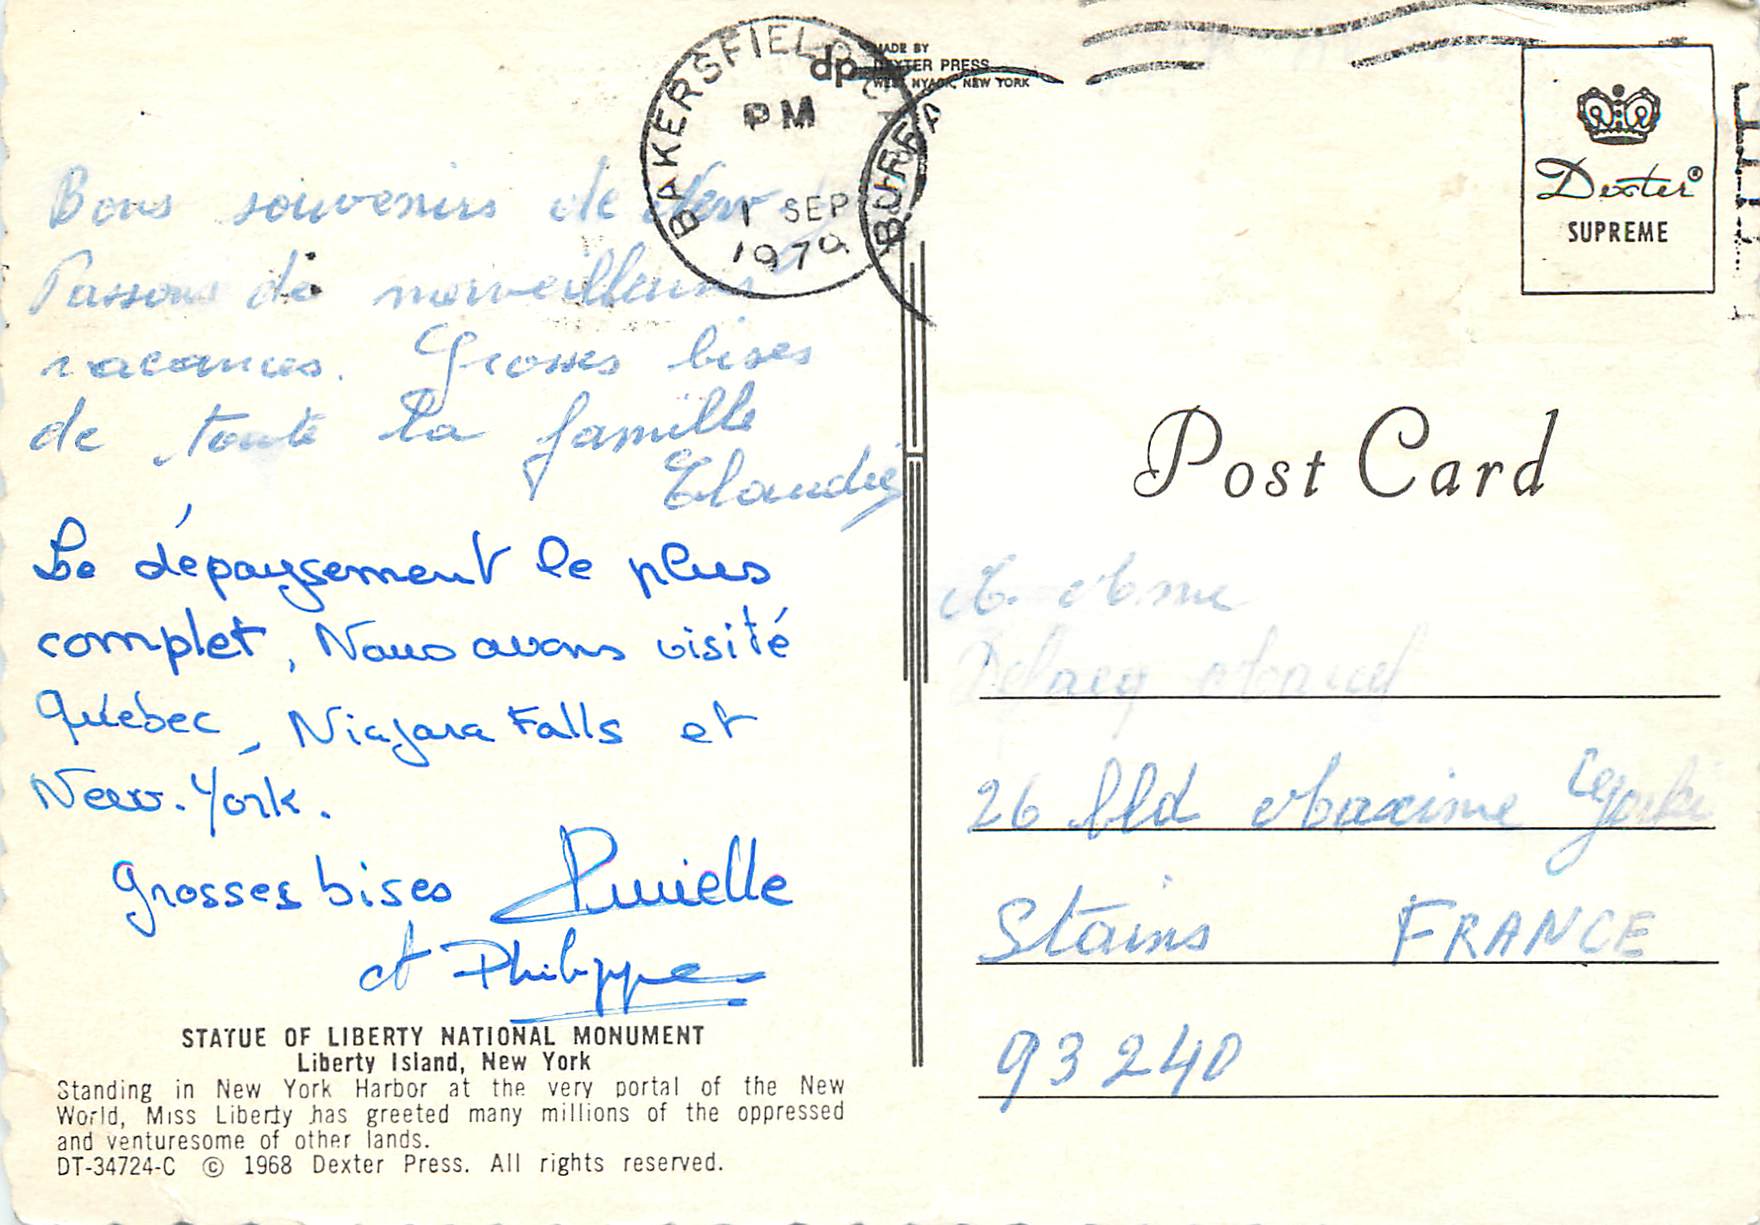 BAKERSFIELD CA
PM
1 SEP
1979
BUFFA
dp
MADE BY
DEXTER PRESS
WEST NYACK, NEW YORK
Dexter®
SUPREME
Bons souvenirs de New
Passons de merveilleuses
vacances. Grosses bises
de toute la famille
Claudie
Le dépaysement le plus
complet, Nous avons visité
Québec, Niagara Falls et
New-York.
Grosses bises
et Philippe
STATUE OF LIBERTY NATIONAL MONUMENT
Liberty Island, New York
Standing in New York Harbor at the very portal of the New
World, Miss Liberty has greeted many millions of the oppressed
and venturesome of other lands.
DT-34724-C © 1968 Dexter Press. All rights reserved.
Post Card
M. Mme
Marcel
26 bld Maxime Gorki
Stains FRANCE
93240